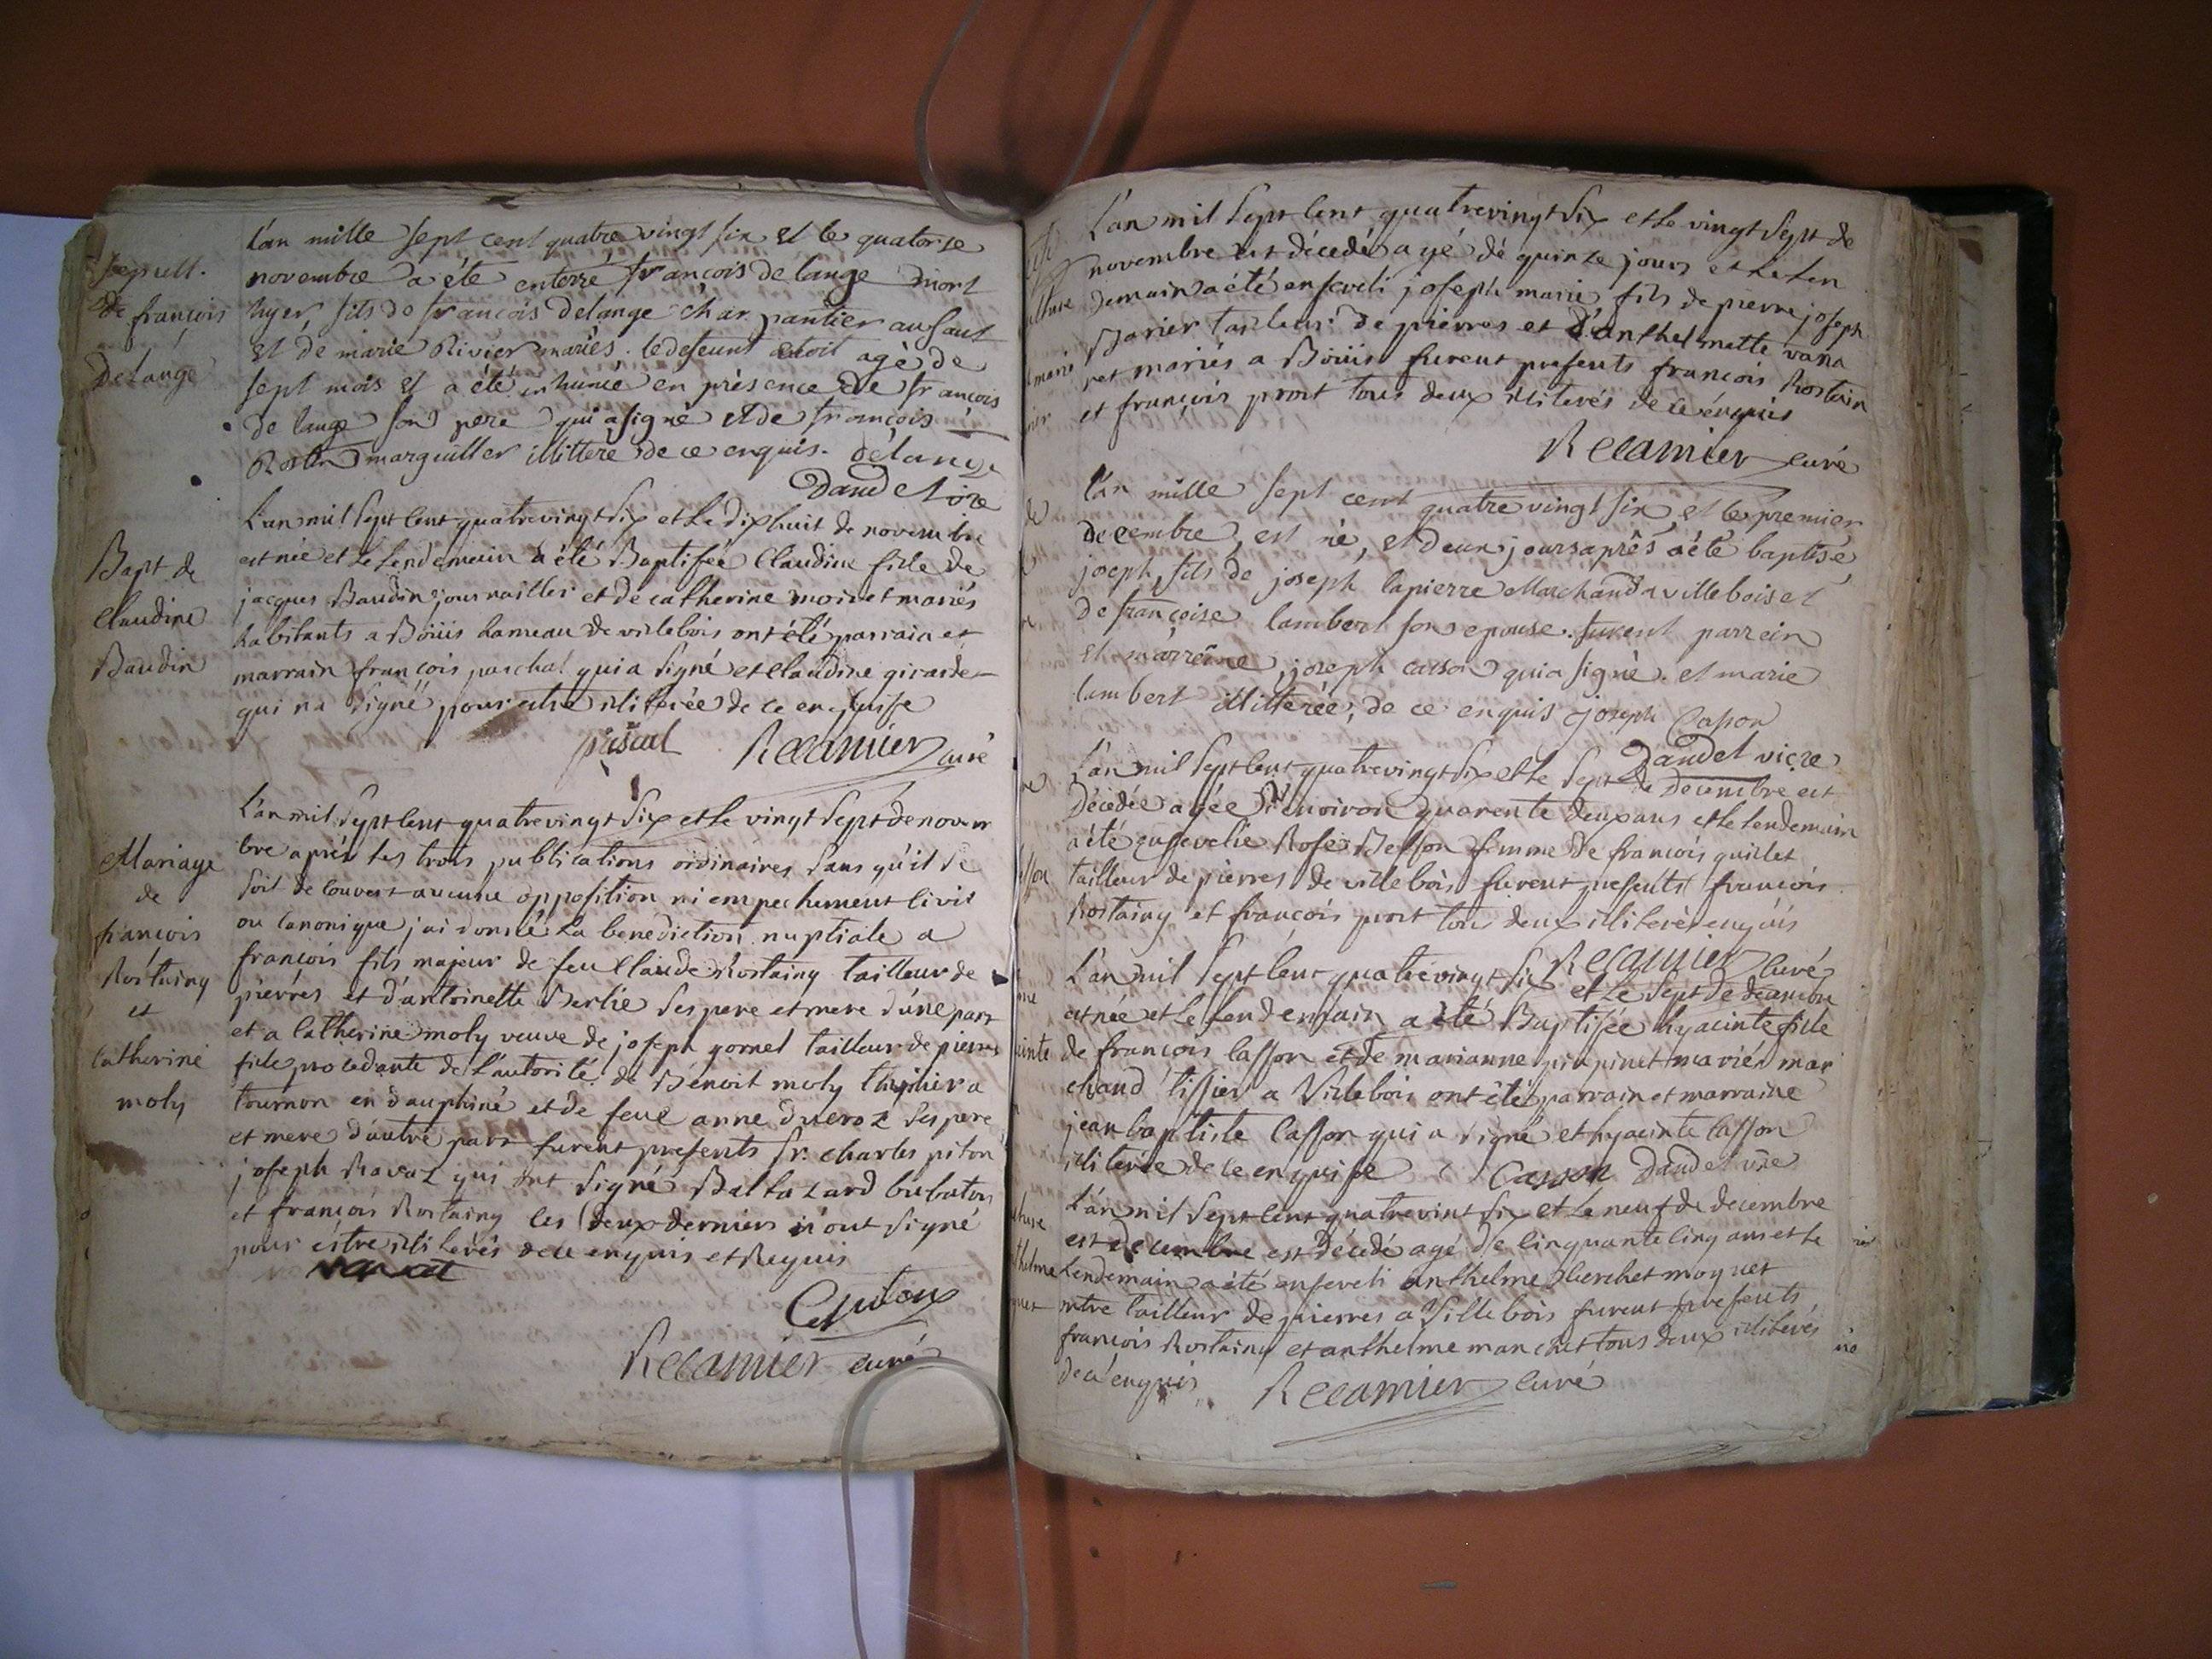 Sepult.
de françois
Delange
L'an mille sept cent quatre vingt six et le quatorze
novembre a été enterré françois de lange mort
hyer, fils de françois Delange charpantier au saut
et de marie Rivier mariés. le defeunt etoit agé de
sept mois et a été inhumé en présence de françois
de lange son pere qui a signé et de françois
Rostin marguiller illitteré de ce enquis. Delange
Daudet vire
Bapt. de
Claudine
Baudin
L'an mil sept cent quatrevingt six et le dix huit de novembre
est née et le lendemain a été Baptisée Claudine fille de
jacques Baudin journailler et de catherine moiret mariés
habitants a Boüis hameau de villebois ont été parrain et
marrain françois paschal qui a signé et claudine girarde
qui na signé pour estre illiterée de ce enquise
pascal Recamier curé
Mariage
de
françois
Rostaing
et
Catherine
moly
L'an mil sept cent quatrevingt six et le vingt sept de novem
bre après les trois publications ordinaires sans qu'il se
soit de couvert aucune opposition ni empechement civil
ou canonique j'ai donné la benediction nuptiale a
françois fils majeur de feu Claude Rostaing tailleur de
pierres et d'antoinette Berlie ses pere et mere d'une part
et a Catherine moly veuve de joseph gomel tailleur de pierres
fille procedante de l'autorité de Benoit moly a
tournon en dauphiné et de feue anne ducroz ses pere
et mere d'autre part furent presents sr. charles piton
joseph Ravaz qui ont signé Baltazard bubaton
et françois Rostaing les deux derniers n'ont signé
pour être illiterés de ce enquis et Requis
ravat
C piton
Recamier curé
L'an mil sept cent quatrevingt six et le vingt sept de
novembre est décedé agé de quinze jours et le len
demain a été enseveli joseph marie fils de pierre joseph
Barier tailleur de pierres et d'anthelmette vana
ret mariés a Boüis furent presents françois Rostain
et françois prost tous deux illiterés de ce enquis
Recamier curé
L'an mille sept cent quatre vingt six, et le premier
decembre, est né, et deux jours après a été baptisé,
joseph, fils de joseph lapierre Marchand a villebois et
de françoise lambert son epouse. furent parrein
et marreine, joseph casson qui a signé. et marie
lambert illitterée, de ce enquis joseph Casson
Daudet vicre
L'an mil sept cent quatrevingt six et le sept de decembre est
décedée agée d'environ quarente deux ans et le lendemain
a été ensevelie Rose Besson femme de françois quillet
tailleur de pierres de villebois furent presents françois
Rostaing et françois prost tous deux illiterés enquis
Recamier curé
L'an mil sept cent quatrevingt six et le sept de decembre
est née et le lendemain a été Baptisée hyacinte fille
de françois Casson et de marianne pinpinet mariés mar
chand tissier a Villebois ont été parrain et marraine
jean baptiste Casson qui a signé et hyacinte Casson
illiterée de ce enquise Casson Daudet vire
L'an mil sept cent quatrevint six et le neuf de decembre
est decembre est décedé agé de cinquante cinq ans et le
Lendemain a été enseveli anthelme Berchet moquet
mtre tailleur de pierres a Villebois furent presents
françois Rostaing et anthelme manchet tous deux illiterés
de ce enquis Recamier curé